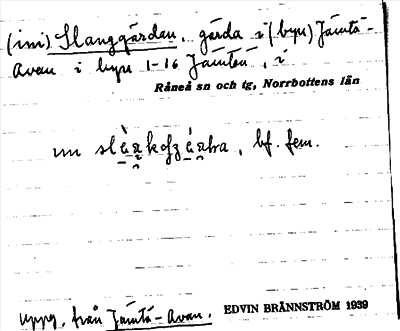 (ini) Slanggärdan, gärda i (byn) Jämtö-
Avan i byn 1-16 Jämtön, i
Råneå sn och tg, Norrbottens län
un
bf. fem.
Uppg. från Jämtö-Avan. EDVIN BRÄNNSTRÖM 1939